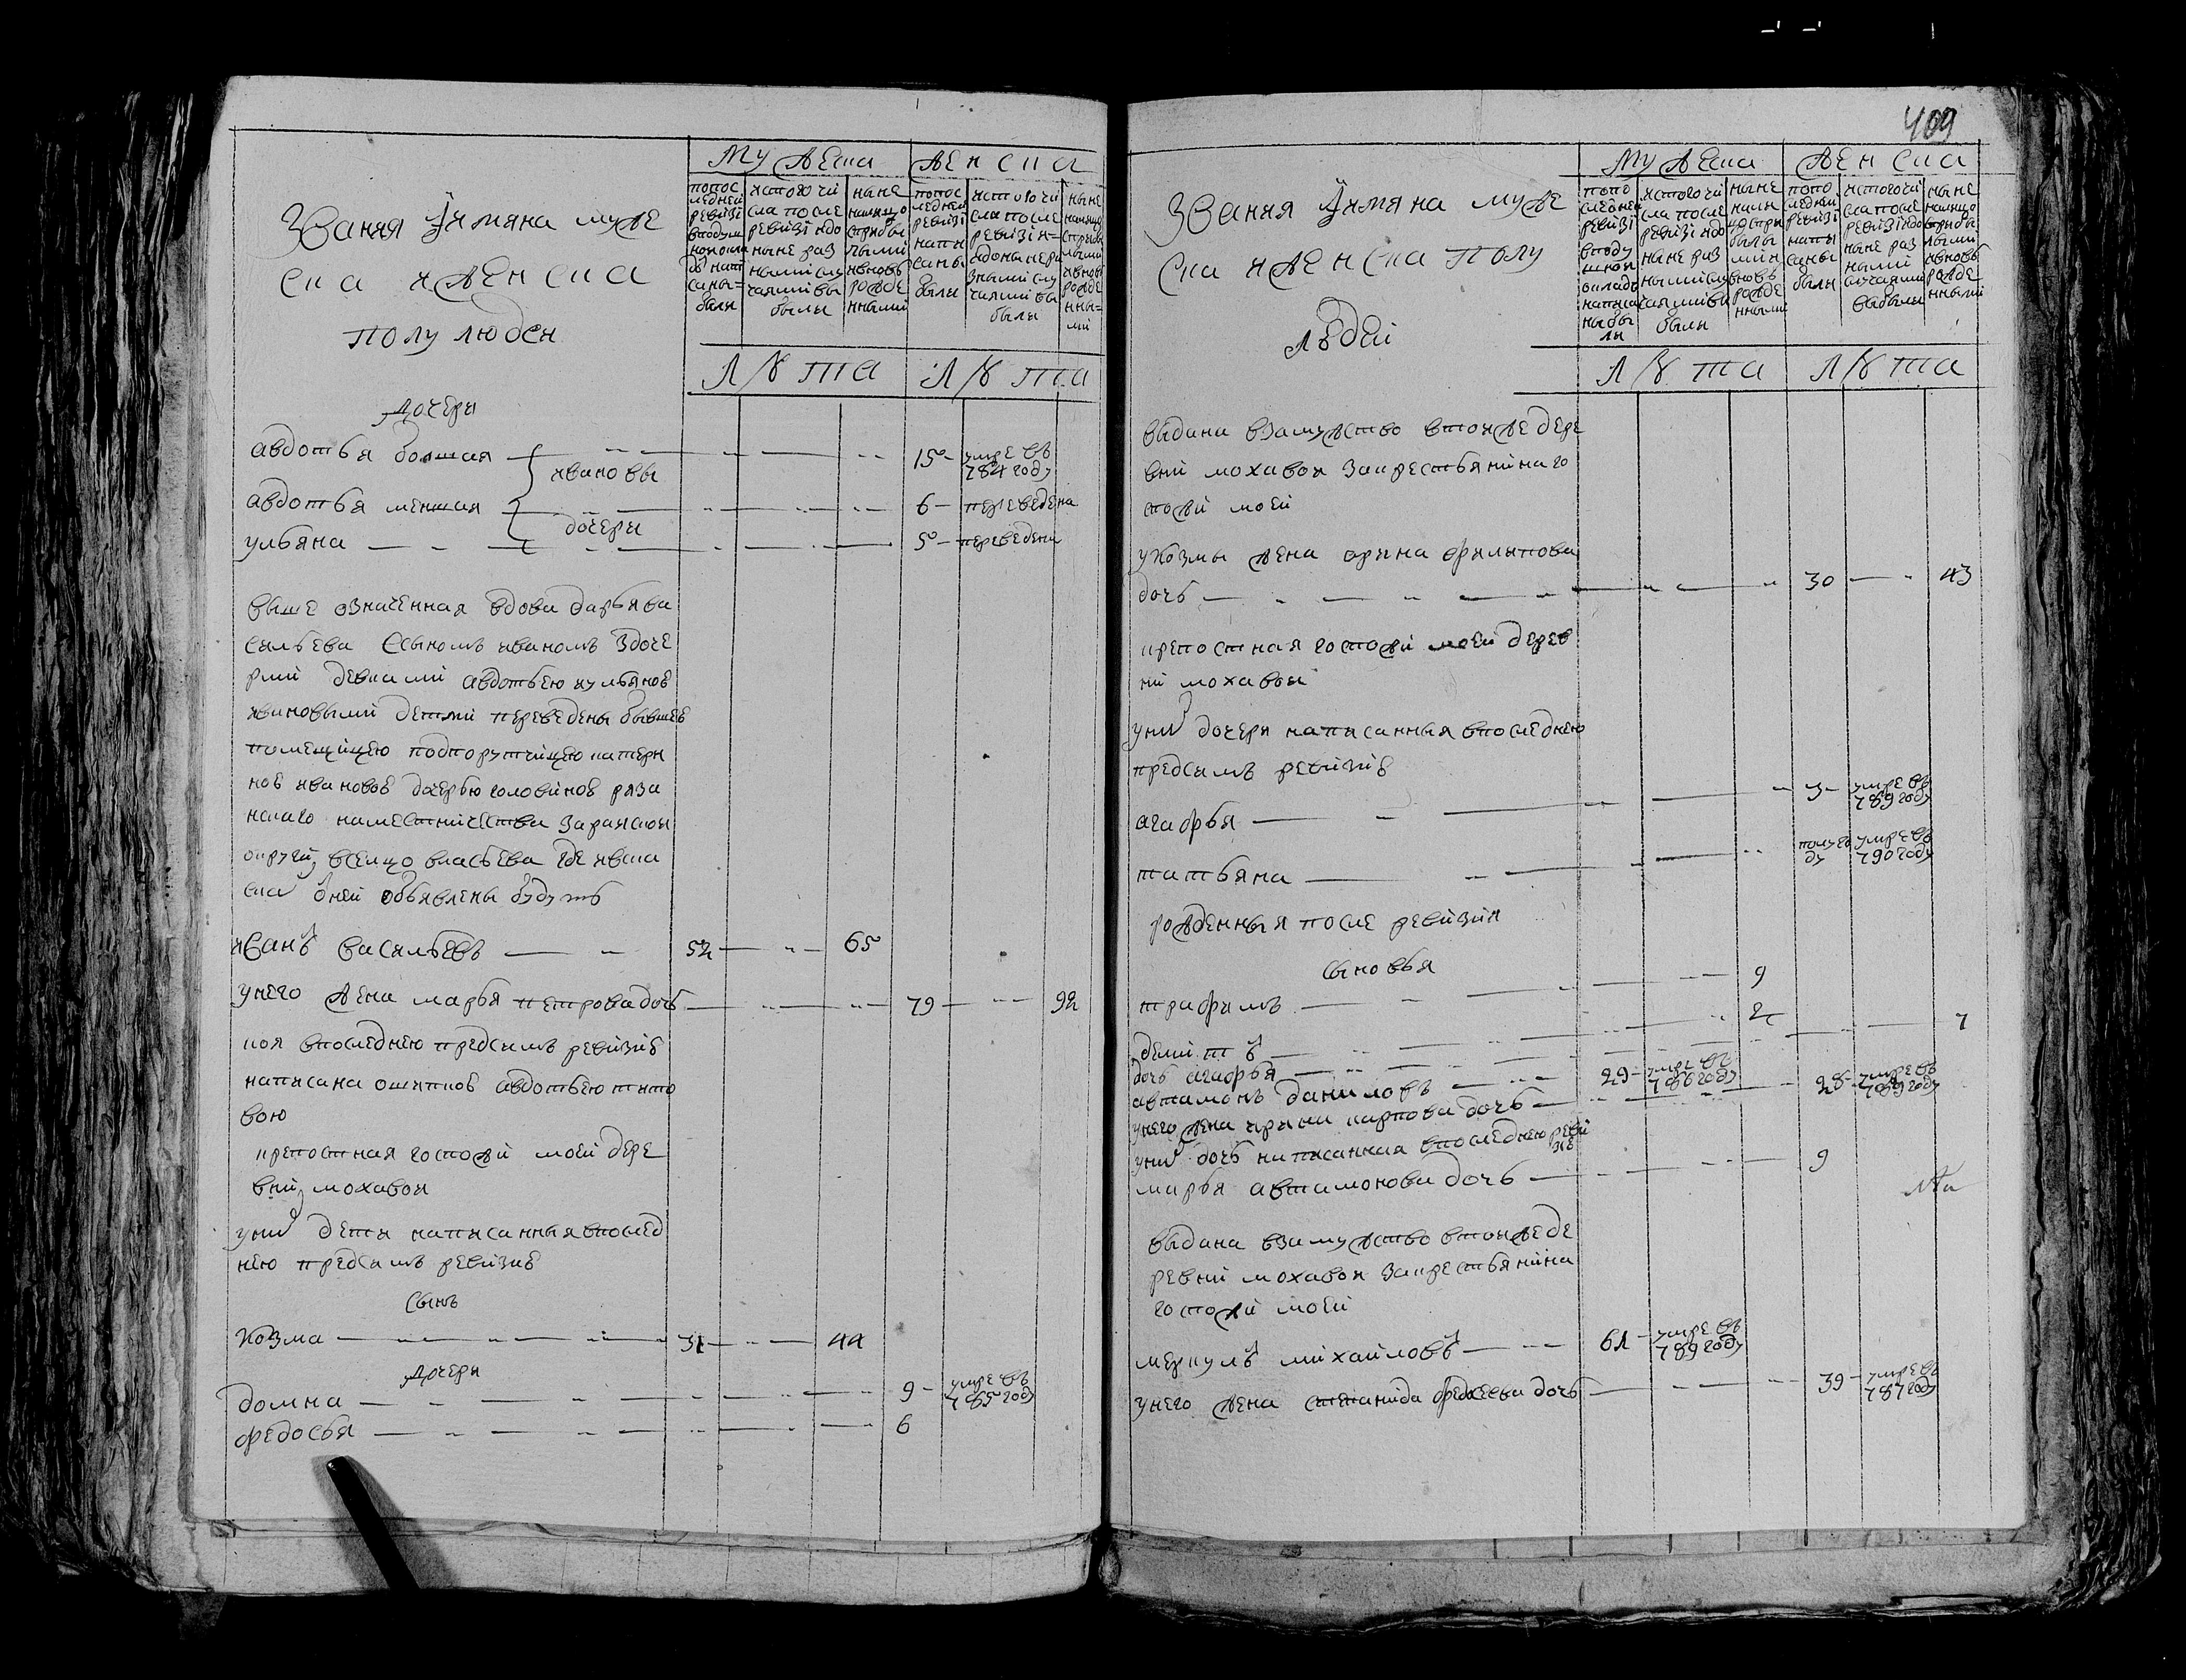 Звания Ӱимяна муже
ска иженска
полу людей
мужеска
женска
попос
ледней
ревизі
вподуш
ном окла
де напи
саны
были
истого чи
сла после
ревизі идо
ныне раз
ными слу
чаями вы
были
ныне
налицо
сприбы
лыми
ивновь
рожде
нными
попос
ледней
ревизі
напи
саны
были
истого чи
сла после
ревизіи
доныне ра
зными слу
чаями вы
были
ныне
налицо
сприбы
лыми
ивновь
рожде
нны
ми
лѣта
лѣта
дочери
авдотья болшая ивановы 15 умре въ 784 году
авдотья меншая дочери 6 переведена
ульяна 5 переведена
выше означенная вдова дарья ва
сильева ссыномъ иваномъ здоче
рми девками авдотьею иульяною
ивановыми детми переведены бывшею
помещицею подпорутчицею катери
ною ивановою дочерью головиною ряза
нскаго наместничества зарайской
округи, вселцо власьева где ивска
ске оней объявлены будутъ
иванъ васильевъ 52 65
унего жена марья петрова дочь 79 92
коя впоследнею предсимъ ревизию
написана ошипкою авдотьею тито
вою
крепостная госпожи моей дере
вни, моховой
уних дети написанныя впослед
нею предсимъ ревизию
сынъ
козма 31 44
дочери
домна 9 умре въ 785 году
федосья 6
409
Звания Ӱимяна муже
ска иженска полу
людей
мужеска
женска
попо
следней
ревизі
вподу
шном
окладе
написа
ны бы
ли
истого чи
сла после
ревизі идо
ныне раз
ными слу
чаями вы
были
ныне
нали
цо спри
былы
ми и
вновь
рожде
нными
попо
следней
ревизі
напи
саны
были
истого чи
сла после
ревизі идо
ныне раз
ными
случаями
выбыли
ныне
налицо
сприбы
лыми
ивновь
рожде
нными
лѣта
лѣта
выдана взамужство втойже дере
вни моховой закрестьянина го
спожи моей
укозмы жена орина филипова
дочь 30 43
крепостная госпожи моей дерев
ни моховой
уних дочери написанныя впоследнею
предсимъ ревизию
агафья 3 умре въ 789 году
татьяна полуго ду умре въ 790 году
рожденныя после ревизии
сыновья
трафимъ 9
демитъ 2
дочь агафья 7
автамонъ даниловъ 29 умре въ 786 году
унего жена ирина карпова дочь 28 умре въ 789 году
уних дочь написанная впоследнею реви
зию
марья автамонова дочь 9
выдана взамужство втойжеде
ревни моховой закрестьянина
госпожи моей
меркулъ михайловъ 61 умре въ 789 году
унего жена степанида федосеева дочь 39 умре въ 787 году